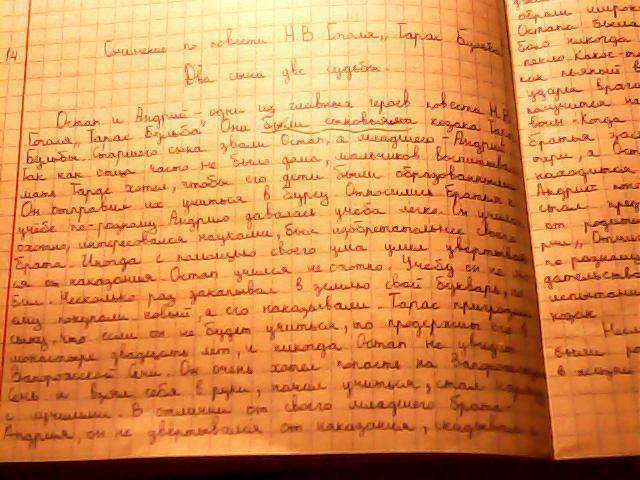 14
Сочинение по повести Н.В. Гоголя „Тарас Бульба
Два сына две судьбы.
Остап и Андрий одни из главных героев повести Н.В.
Гоголя „Тарас Бульба" Они были сыновьями козака Тараса
Бульбы. Старшего сына звали Остап, а младшего - Андрий
Так как отца часто не было дома, мальчиков воспитывала
мать Тарас хотел, чтобы его дети были образованными
Он отправил их учиться в бурсу. Относились братья к
учёбе по-разному Андрию давалась учёба легко. Он учился
охотно, интересовался науками, был изобретательнее своего
брата. Иногда с помощью своего ума умел увертывать
ся от наказания Остап учился не охотно. Учебу он не лю
бил. Несколько раз закапывал в землю свой букварь, но
ему покупали новый, а его наказывали. Тарас пригрозил
сыну, что если он не будет учиться, то продержит его в
монастыре двадцать лет, и никогда Остап не увидит
Запорожской Сечи. Он очень хотел попасть на Запорожскую
Сечь и взял себя в руки, начал учиться, стал
с лучшими. В отличии от своего младшего брата
Андрия, он не увертывался от наказания, скидывал
обрели широк
Остапа
было никогда
пекло. Какое-то
как пьяный в
удара врага
боты. Когда
братья
а Оста
находится
Андрий
стал пред
от родите
рии„ Отнош
по разному
дательства
испытани
козак
были ро